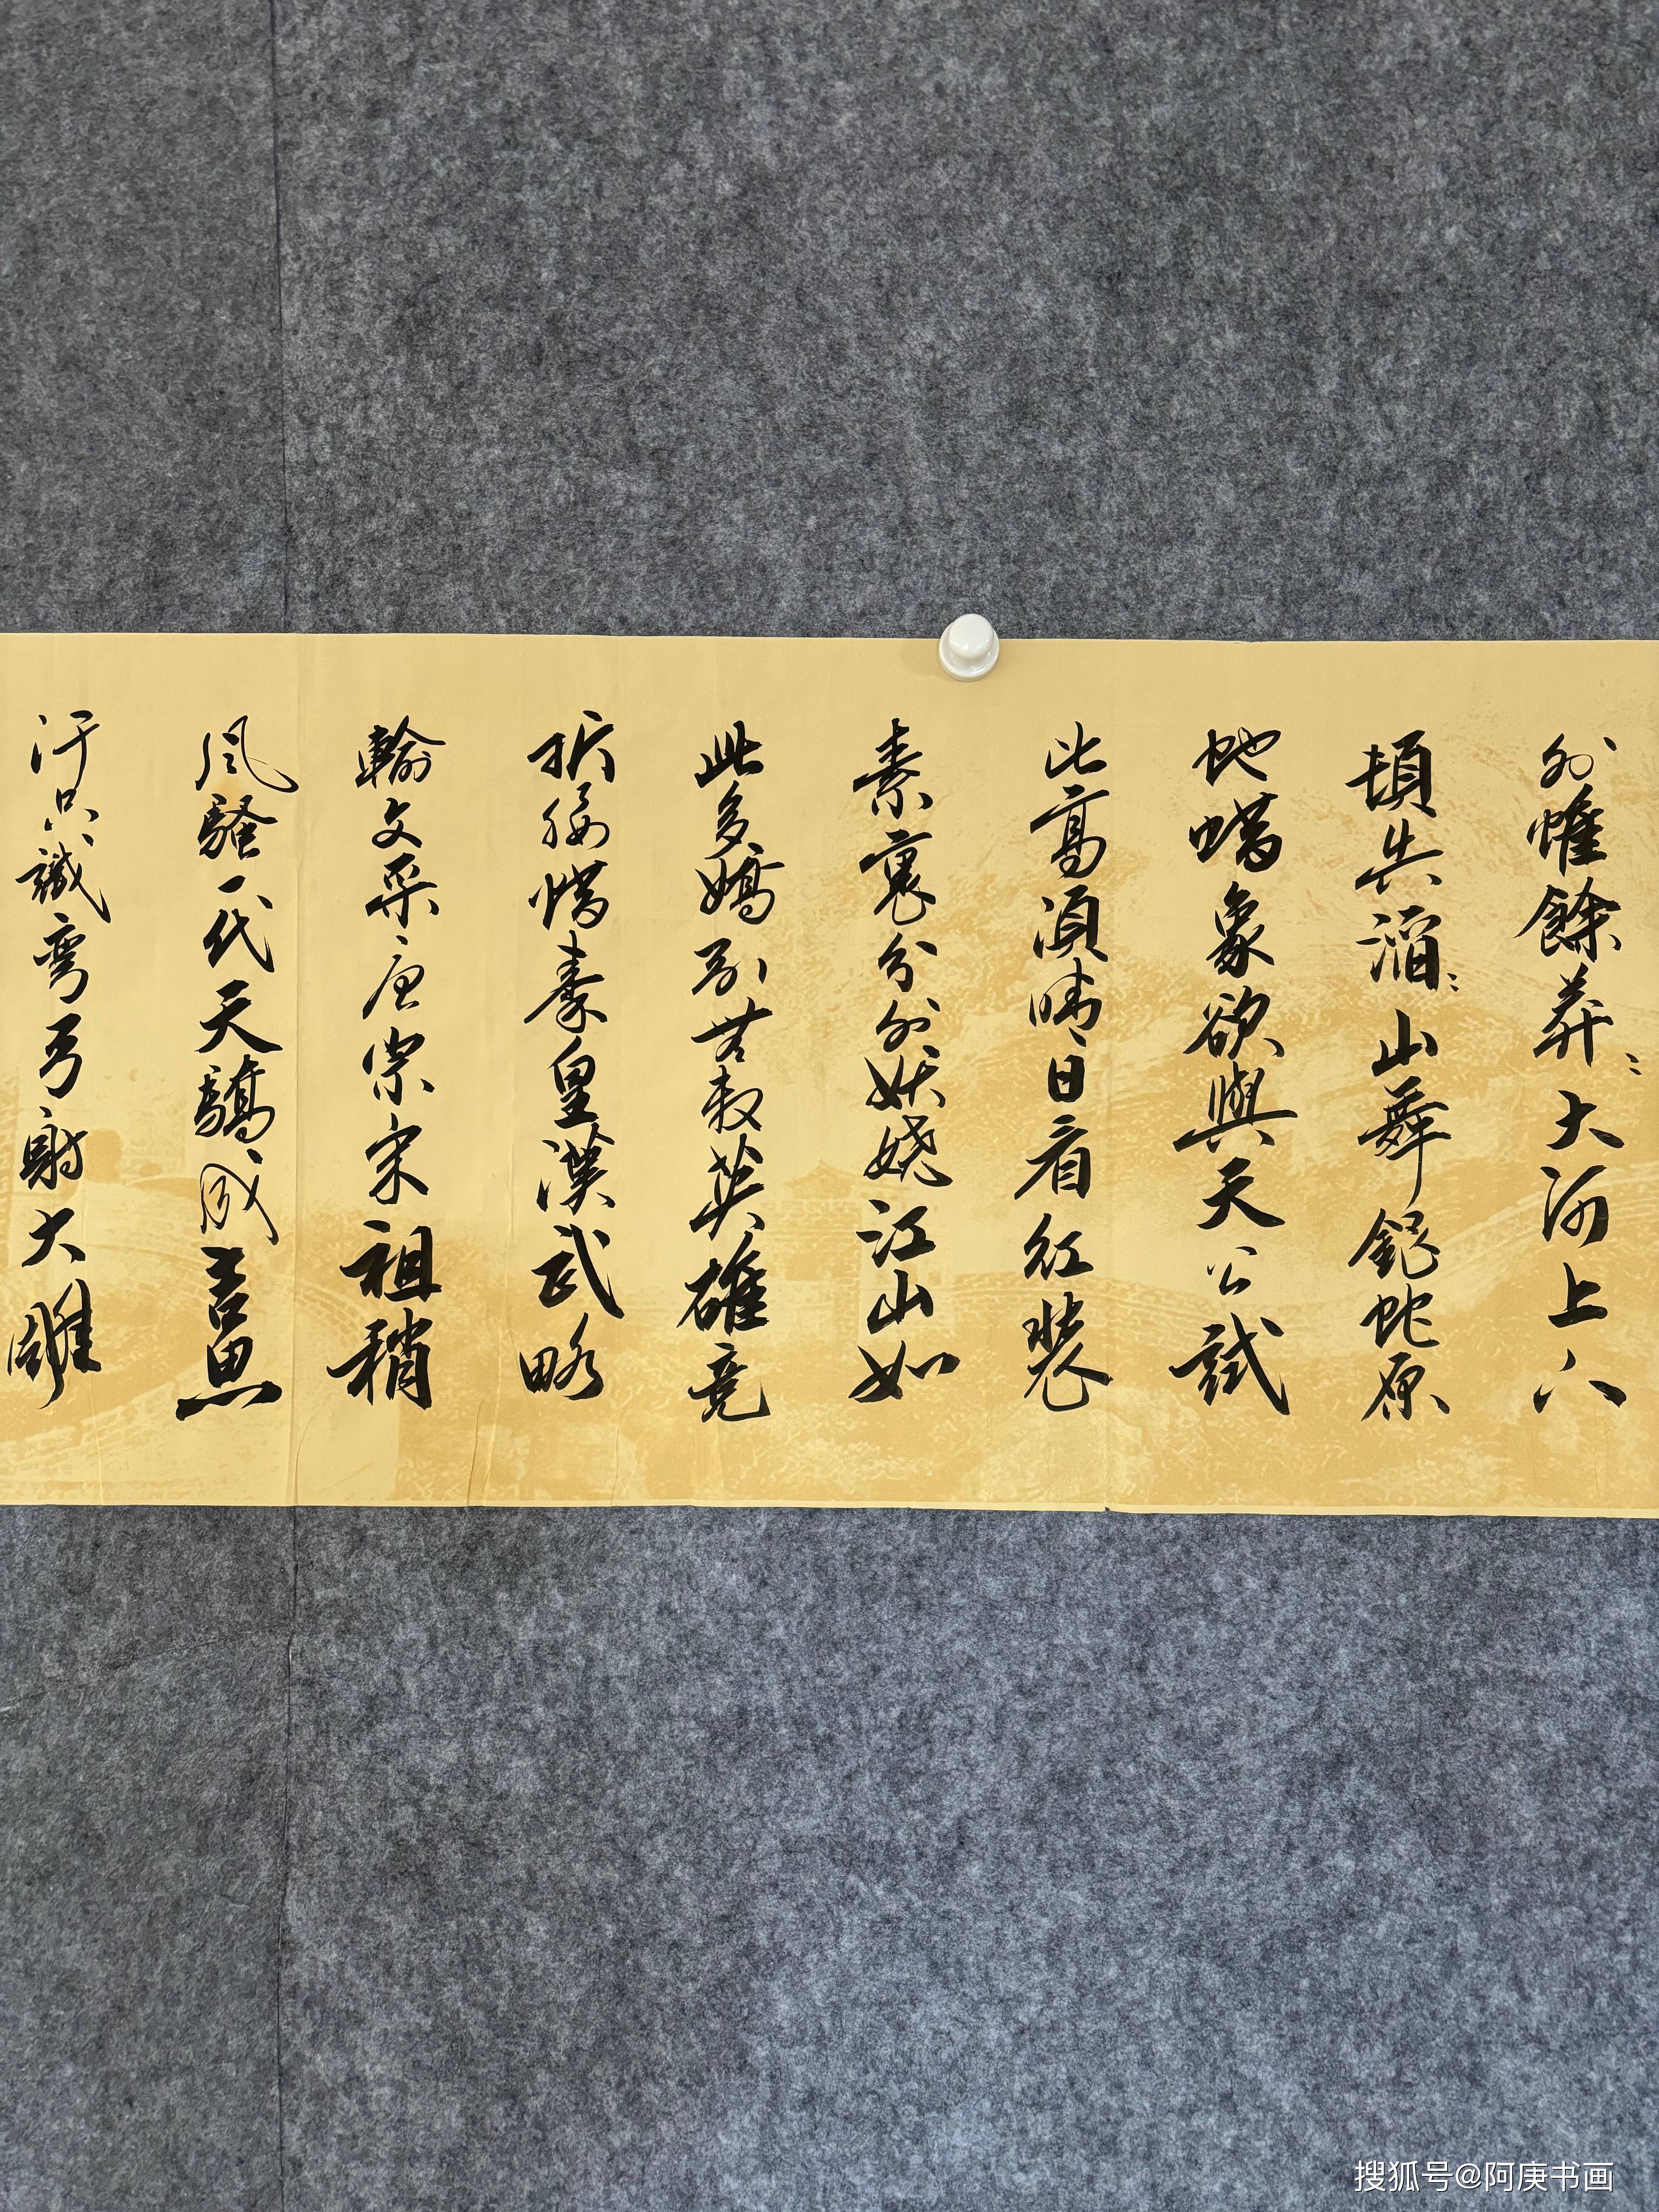 外惟餘莽〻大河上下
頓失滔〻山舞銀蛇原
馳蠟象欲與天公試
比高須晴日看紅裝
素裹分外妖嬈江山如
此多嬌引無數英雄竞
折腰惜秦皇漢武略
輸文采唐宗宋祖稍
風騷一代天驕成吉思
汗只識弯弓射大雕
搜狐号@阿庚书画